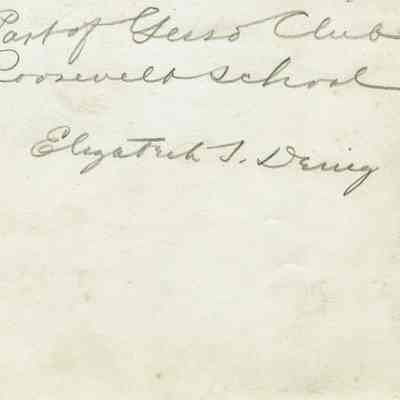 Part of Gesso Club
Roosevelt School
Elizabeth S. Dering